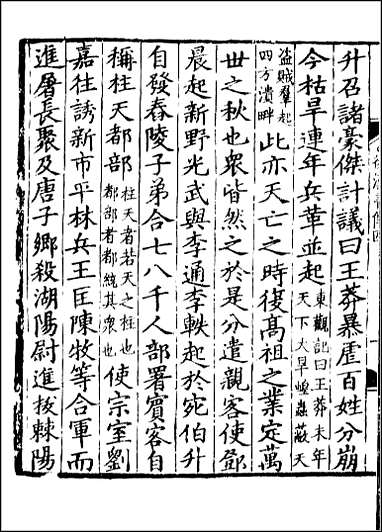 升召諸豪傑計議曰王莽暴虐百姓分崩
今枯旱連年兵革並起東觀記曰王莽末年天下大旱蝗蟲蔽天
盜賊羣起四方潰畔此亦天亡之時復高祖之業定萬
世之秋也衆皆然之於是分遣親客使鄧
晨起新野光武與李通李軼起於宛伯升
自發舂陵子弟合七八千人部署賓客自
稱柱天都部柱天者若天之柱也都部者都統其衆也使宗室劉
嘉往誘新市平林兵王匡陳牧等合軍而
進屠長聚及唐子鄉殺湖陽尉進拔棘陽